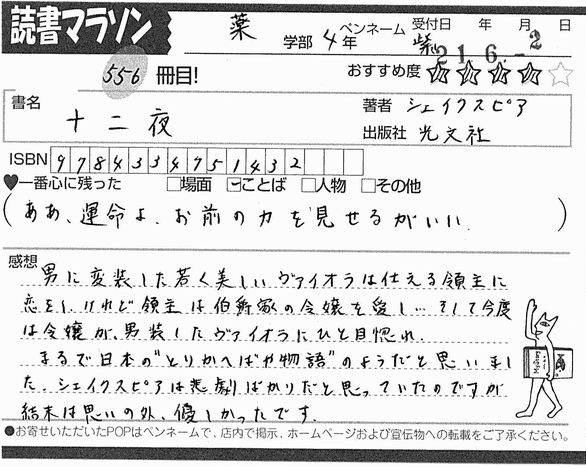 読書マラソン
薬 学部 4年 ペンネーム 紫 受付日 年 月 日
21.6.-2
556 冊目! おすすめ度 ☆☆☆☆☆
書名 十二夜
著者 シェイクスピア
出版社 光文社
ISBN 9784334751432
♥一番心に残った □場面 ☑ことば □人物 □その他
(ああ、運命よ、お前の力を見せるがいい。)
感想
男に変装した若く美しいヴァイオラは仕える領主に
恋をし、けれど領主は伯爵家の令嬢を愛し… そして今度
は令嬢が、男装したヴァイオラにひと目惚れ。
まるで日本の"とりかへばや物語"のようだと思いまし
た。シェイクスピアは悲劇ばかりだと思っていたのですが
結末は思いの外、優しかったです。
●お寄せいただいたPOPはペンネームで、店内で掲示、ホームページおよび宣伝物への転載をご了承ください。